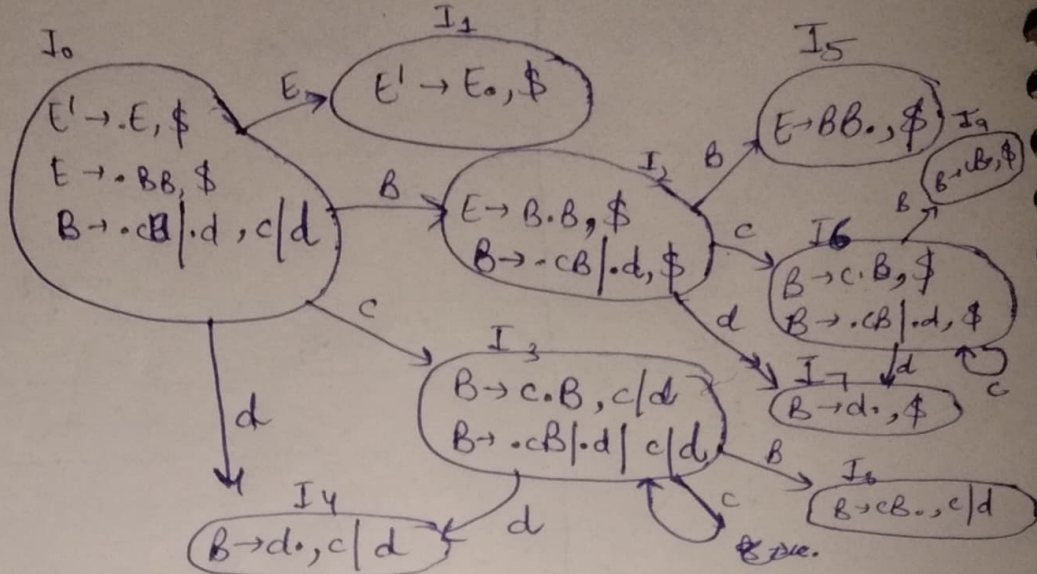 I0
E' → .E, $
E → .BB, $
B → .cB | .d , c/d
E
I1
E' → E., $
B
I2
E → B.B, $
B → .cB | .d, $
B
I5
E → BB., $
c
I6
B → c.B, $
B → .cB | .d, $
B
I9
B → cB., $
d
d
c
I7
B → d., $
c
I3
B → c.B, c/d
B → .cB | .d | c/d
B
I8
B → cB., c/d
c
d
d
I4
B → d., c/d